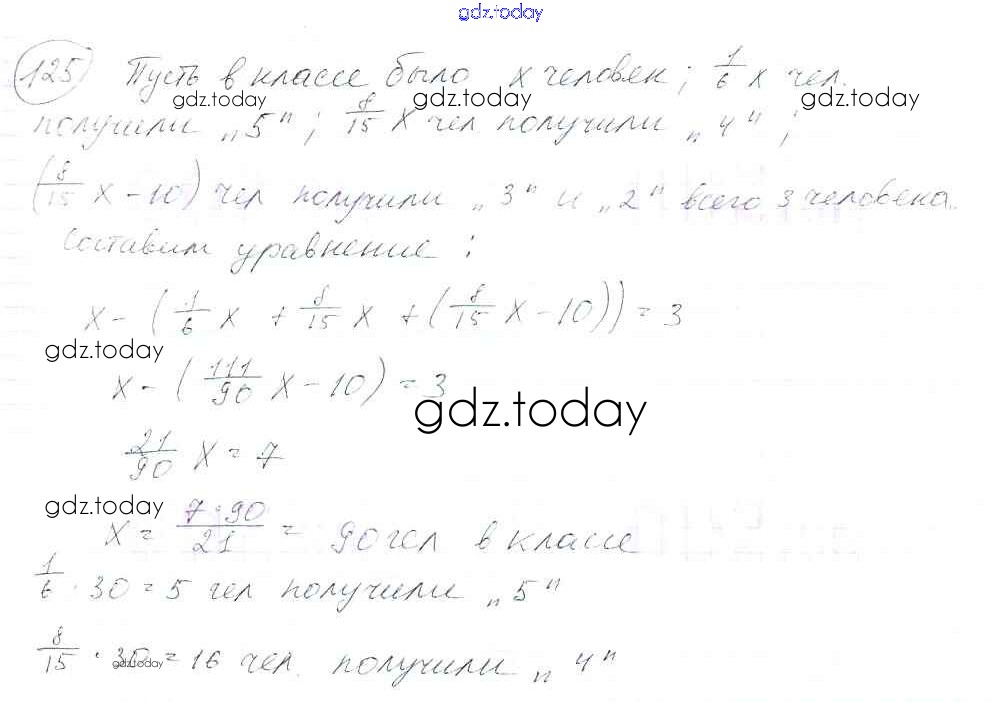 gdz.today
125 Пусть в классе было x человек; 1/6 x чел.
gdz.today gdz.today gdz.today
получили „5"; 8/15 x чел получили „4";
(8/15 x - 10) чел получили „3" и „2" всего 3 человека.
Составим уравнение:
x - (1/6 x + 8/15 x + (8/15 x - 10)) = 3
gdz.today
x - (111/90 x - 10) = 3
gdz.today
21/90 x = 7
gdz.today
x = 7·90/21 = 90 чел в классе
1/6 · 30 = 5 чел получили „5"
8/15 · 30 = 16 чел. получили „4"
gdz.today